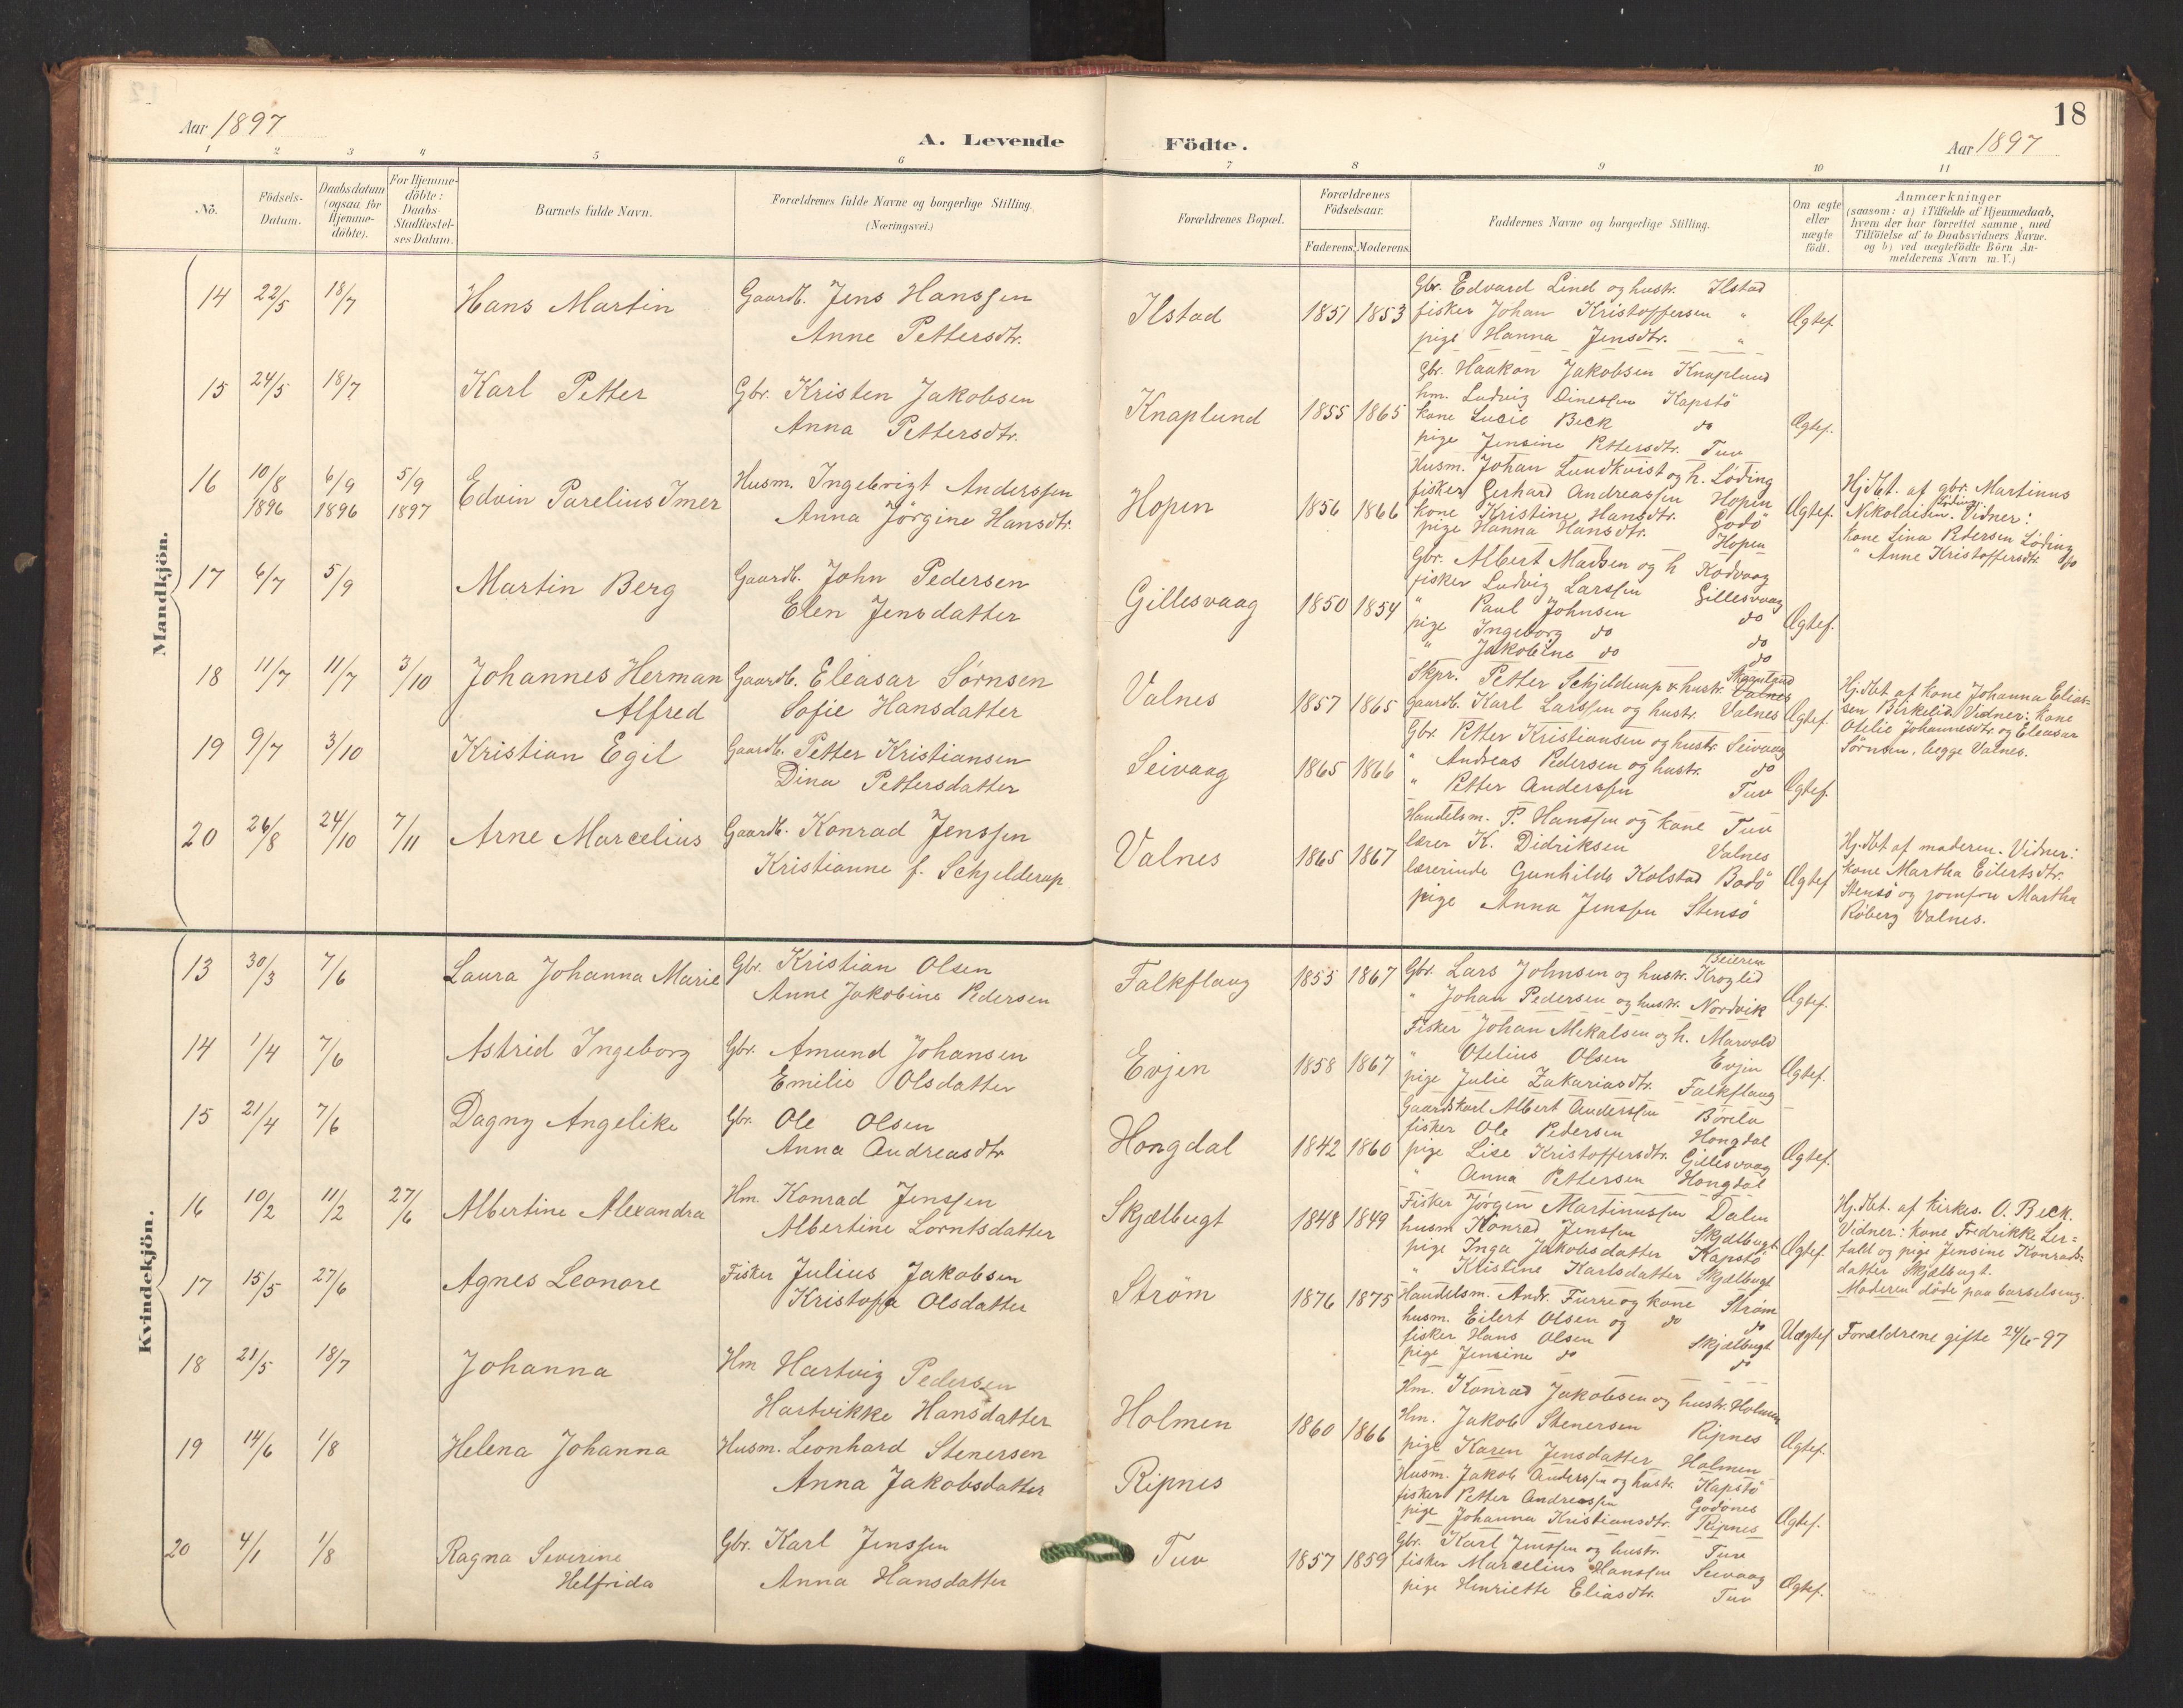 18
Aar 1897
A. Levende
Födte.
Aar 1897
1 2 3 4 5 6 7 8 9 10 11
No.
Födsels-
Datum.
Daabsdatum
(ogsaa for
Hjemme-
döbte).
For Hjemme-
döbte:
Daabs-
Stadfæstel-
ses Datum.
Barnets fulde Navn.
Forældrenes fulde Navne og borgerlige Stilling.
(Næringsvei.)
Forældrenes Bopæl.
Forældrenes
Födselsaar.
Faderens. Moderens.
Faddernes Navne og borgerlige Stilling.
Om ægte
eller
uægte
födt.
Anmærkninger
(saasom: a) i Tilfælde af Hjemmedaab,
hvem der har forrettet samme, med
Tilföielse af to Daabsvidners Navne.
og b) ved uægtefödte Börn An-
melderens Navn m. V.)
Mandkjön.
14 22/5 18/7 Hans Martin
Gaardb. Jens Hanssen
Anne Pettersdtr.
Ilstad 1851 1853
Gbr. Edvard Lind og hustr. Ilstad
fisker Johan Kristoffersen "
pige Hanna Jensdtr. "
Ægtef.
15 24/5 18/7 Karl Petter
Gbr. Kristen Jakobsen
Anna Pettersdtr.
Knaplund 1855 1865
Gbr. Haakon Jakobsen Knaplund
hm. Ludvig Dinessen Kapstö
kone Lucie Beck do
pige Jensine Pettersdtr. Tuv
Ægtef.
16 10/8 1896 6/9 1896 5/9 1897 Edvin Parelius Imer
Husm. Ingebrigt Anderssen
Anna Jörgine Hansdtr.
Hopen 1856 1866
Husm. Johan Lundkvist og h. Löding
fisker Gerhard Andreassen Hopen
kone Kristine Hansdtr. Godö
pige Hanna Hansdtr. Hopen
Ægtef.
Hj.dbt. af gbr. Martinus
Nikolaisen Löding. Vidner:
kone Lina Pedersen Löding
" Anne Kristoffersdtr. do
17 6/7 5/9 Martin Berg
Gaardb. John Pedersen
Elen Jensdatter
Gillesvaag 1850 1854
Gbr. Albert Madsen og h Kodvaag
fisker Ludvig Larssen Gillesvaag
" Paul Johnsen do
pige Ingeborg do do
" Jakobine do do
Ægtef.
18 11/7 11/7 3/10 Johannes Herman
Alfred
Gaardb. Eleasar Sörnsen
Sofie Hansdatter
Valnes 1857 1865
Skpr. Petter Schjelderup & hustr. Skaanland
gaardb. Karl Larssen og hustr. Valnes
Ægtef.
Hj.dbt af kone Johanna Elias-
sen Birkelid. Vidner: kone
Otelie Johannesdtr. og Eleasar
Sörnsen, begge Valnes.
19 9/7 3/10 Kristian Egil
Gaardb. Petter Kristiansen
Dina Pettersdatter
Seivaag 1865 1866
Gbr. Petter Kristiansen og hustr. Seivaag
" Andreas Pedersen og hustr. do
" Petter Anderssen Tuv
Ægtef.
20 26/8 24/10 7/11 Arne Marcelius
Gaardb. Konrad Jenssen
Kristianne f. Schjelderup
Valnes 1865 1867
Handelsm. P. Hanssen og kone Tuv
lærer K. Didriksen Valnes
lærerinde Gunhilde Kolstad Bodö
pige Anna Jenssen Stensö
Ægtef
Hj.dbt af moderen. Vidner:
kone Martha Eilertsdtr.
Stensö og jomfru Martha
Röberg Valnes.
Kvindekjön.
13 30/3 7/6 Laura Johanna Marie
Gbr. Kristian Olsen
Anne Jakobine Pedersen
Falkflaug 1855 1867
Gbr. Lars Johnsen og hustr. Kroglid Beieren
" Johan Pedersen og hustr. Nordvik
Ægtef.
14 1/4 7/6 Astrid Ingeborg
Gbr. Amund Johansen
Emilie Olsdatter
Evjen 1858 1867
Fisker Johan Mekalsen og h. Marvold
" Otelius Olsen Evjen
pige Julie Zakariasdtr. Falkflaug
Ægtef.
15 21/4 7/6 Dagny Angelike
Gbr. Ole Olsen
Anna Andreasdtr
Hongdal 1842 1860
Gaardskarl Albert Anderssen Börelv
fisker Ole Pedersen Hongdal
pige Lise Kristoffersdtr. Gillesvaag
" Anna Pettersen Hongdal
Ægtef.
16 10/2 11/2 27/6 Albertine Alexandra
Hm. Konrad Jenssen
Albertine Lorntsdatter
Skjælbugt 1848 1849
Fisker Jörgen Martinussen Dalen
husm Konrad Jenssen Skjælbugt
pige Inga Jakobsdatter Kapstö
" Kristine Karlsdatter Skjælbugt
Ægtef.
Hj.dbt. af kirkes. O. Beck.
Vidner: kone Fredrikke Ler-
fald og pige Jensine Konrads-
datter Skjælbugt.
Moderen döde paa barselseng.
17 15/5 27/6 Agnes Leonore
Fisker Julius Jakobsen
Kristofa Olsdatter
Ström 1876 1875
Handelsm. Andr. Furre og kone Ström
husm. Eilert Olsen og do do
fisker Hans Olsen Skjælbugt
pige Jensine do do
Uægtef
Forældrene gifte 24/6-97
18 21/5 18/7 Johanna
Hm Hartvig Pedersen
Hartvikke Hansdatter
Holmen 1860 1866
Hm. Konrad Jakobsen og hustr. Holmen
Hm. Jakob Stenersen Ripnes
pige Karen Jensdatter Holmen
Ægtef.
19 14/6 1/8 Helena Johanna
Husm. Leonhard Stenersen
Anna Jakobsdatter
Ripnes
Husm. Jakob Anderssen og hustr. Kapstö
fisker Petter Andreassen Godönes
pige Johanna Kristiansdtr. Ripnes
Ægtef.
20 4/1 1/8 Ragna Severine
Helfrida
Gbr. Karl Jenssen
Anna Hansdatter
Tuv 1857 1859
Gbr. Karl Jenssen og hustr. Tuv
fisker Marcelius Hanssen Seivaag
pige Henriette Eliasdtr. Tuv
Ægtef.